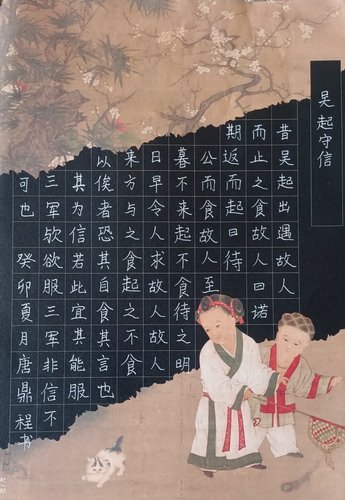 吴起守信
昔吴起出遇故人
而止之食故人曰诺
期返而起曰待
公而食故人至
暮不来起不食待之明
日早令人求故人故人
来方与之食起之不食
以俟者恐其自食其言也
其为信若此宜其能服
三军欤欲服三军非信不
可也 癸卯夏月唐鼎程书